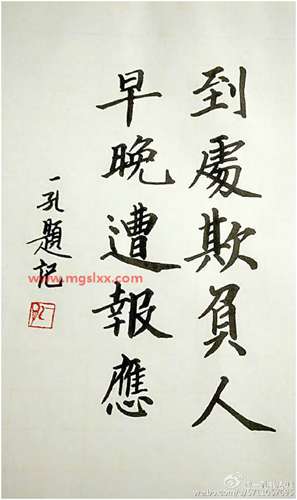 到處欺負人
早晚遭報應
一孔題記
www.mgslxx.com